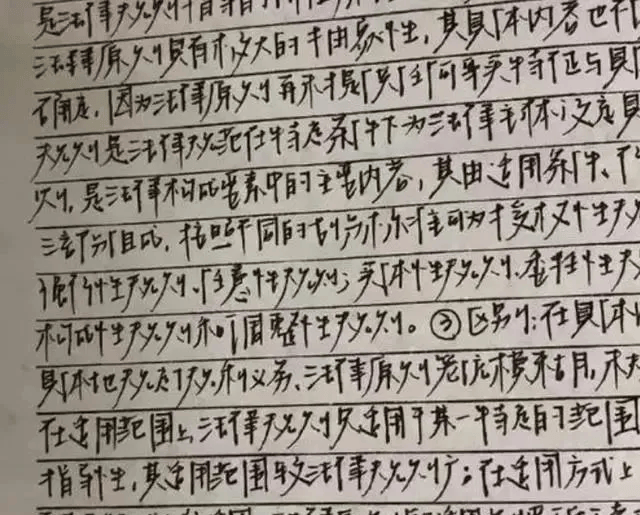 是法律规则
法律原则具有较大的抽象性，其具体内容也不
确定，因为法律原则
规则是法律规范在特定条件下为法律主体设定具
则，是法律构成要素中的主要内容，其由适用条件、
三部分组成，按照不同的划分标准可为授权性规
强行性规则、任意性规则；实体性规则、委任性规
构成性规则和调整性规则。③区别：在具体
具体地规定了权利义务、法律原则笼统模糊，未
在适用范围上，法律规则只适用于某一特定的范围
指导性，其适用范围较法律规则广；在适用方式上